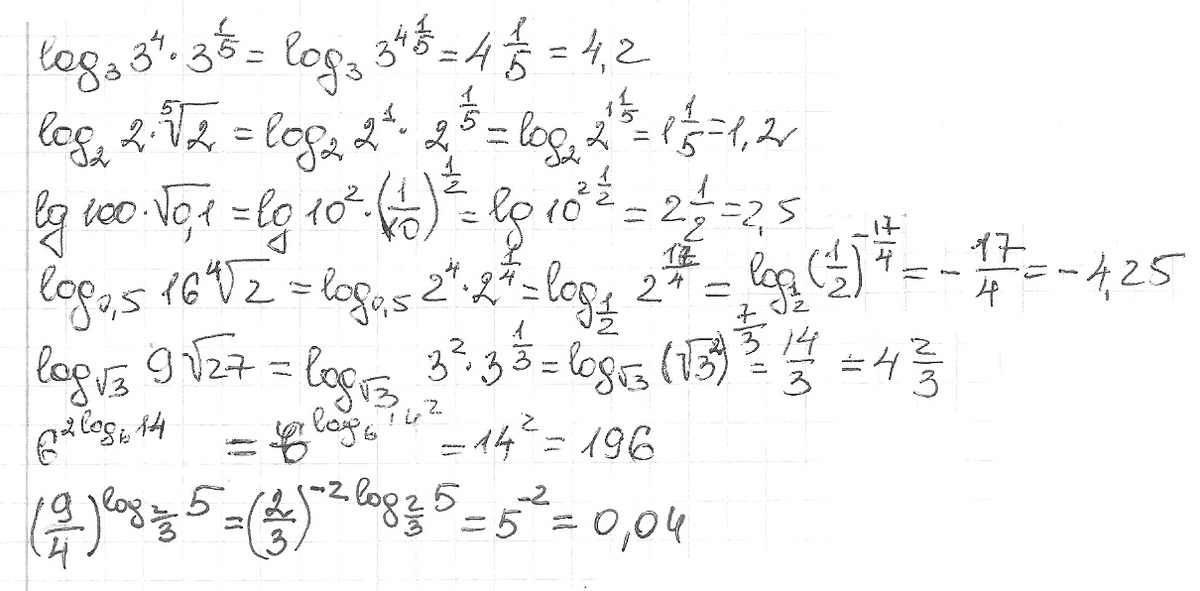 log₃ 3⁴ · 3^(1/5) = log₃ 3^(4 1/5) = 4 1/5 = 4,2
log₂ 2 · ⁵√2 = log₂ 2¹ · 2^(1/5) = log₂ 2^(1 1/5) = 1 1/5 = 1,2
lg 100 · √0,1 = lg 10² · (1/10)^(1/2) = lg 10^(2 1/2) = 2 1/2 = 2,5
log₀,₅ 16 ⁴√2 = log₀,₅ 2⁴ · 2^(1/4) = log_(1/2) 2^(17/4) = log_(1/2) (1/2)^(-17/4) = - 17/4 = - 4,25
log_√3 9√27 = log_√3 3² · 3^(1/3) = log_√3 (√3²)^(7/3) = 14/3 = 4 2/3
6^(2log₆14) = 6^(log₆14²) = 14² = 196
(9/4)^(log_(2/3) 5) = (2/3)^(-2 log_(2/3) 5) = 5⁻² = 0,04